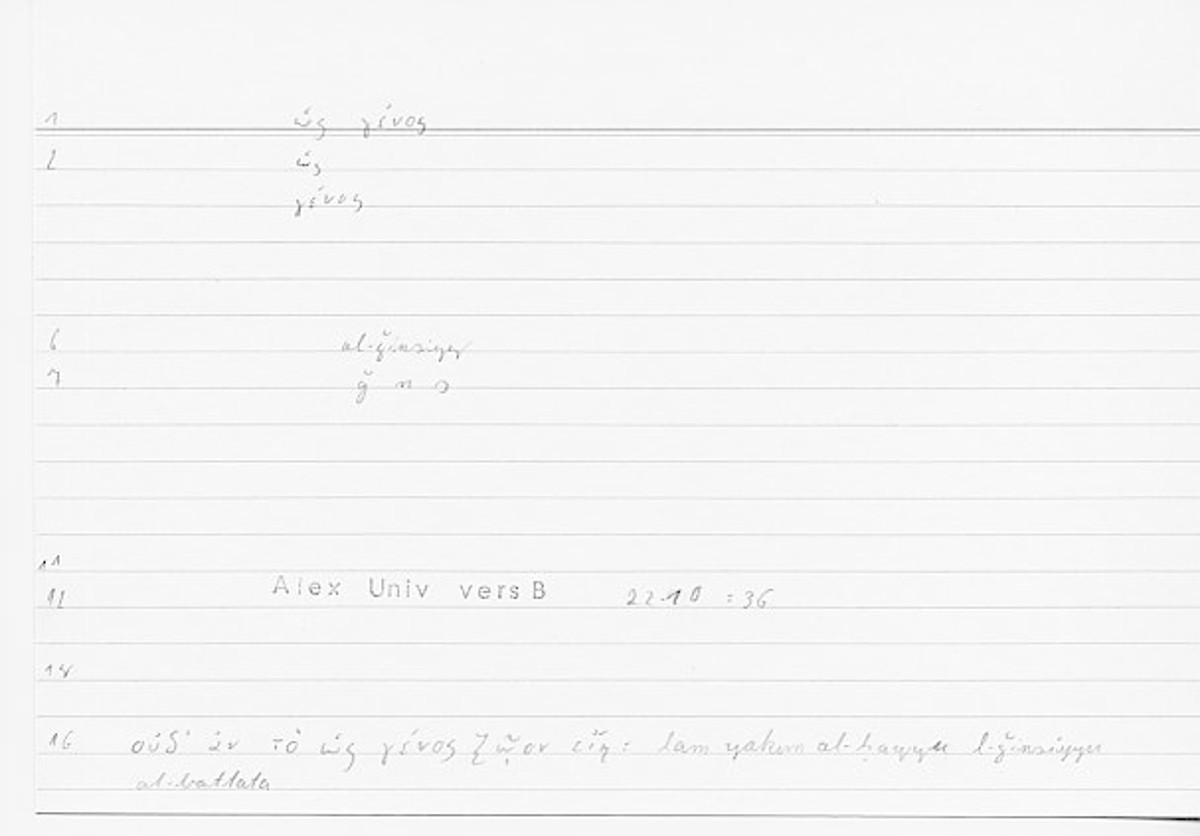 1 ὡς γένος
2 ὡς
γένος
6 al-ǧinsiyy
7 ǧ n s
11
12 Alex Univ vers B 22.10 = 36
14
16 οὐδ' ἂν τὸ ὡς γένος ζῷον εἴη : lam yakun al-ḥayyu l-ǧinsiyyu
al-battata